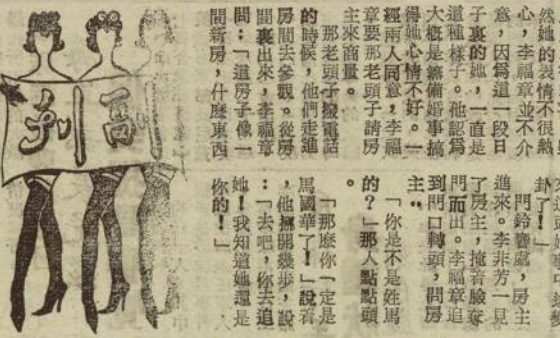 然她的表情不很熱
心，李福章並不介
意，因爲這一段日
子裏的她，一直是
這種樣子。他認爲
大概是籌備婚事搞
得她心情不好。一
經兩人同意，李福
章要那老頭子請房
主來商量。
那老頭子撥電話
的時候，他們走進
房間去參觀。從房
間裏出來，李福章
問：「這房子像一
間新房，什麼東西
卦了！」
門鈴響處，房主
進來。李非芳一見
了房主，掩着臉奔
門而出。李福章追
到門口轉頭，問房
主：
「你是不是姓馬
的？」那人點點頭
。
「那麼你一定是
馬國華了！」說着
，他搬開幾步，說
：「去吧，你去追
她！我知道她還是
你的！」
副刊